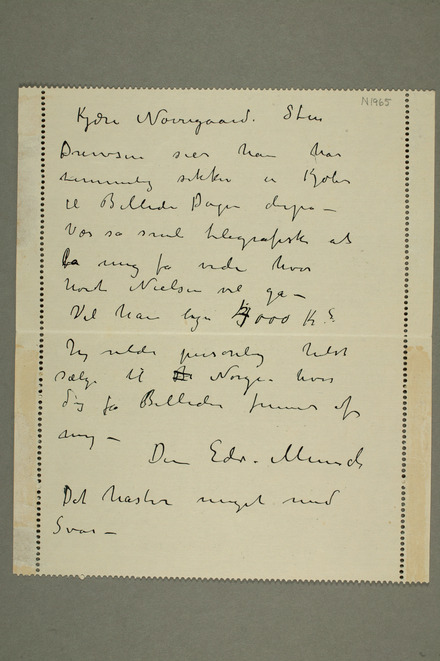 N1965
Kjære Nørregaard. Sten
Drewsen sier han har
temmelig sikker en Kjøber
til Billedet Dagen derpå —
Vær så snil telegrafisk at
la mig få vide hvor
høit Nielsen vil gå —
Vil han byde 4000 Kr?
Jeg vilde personlig helst
sælge til Norge hvor
der få Billeder findes af
mig —
Din Edv. Munch
Det haster meget med
Svar —